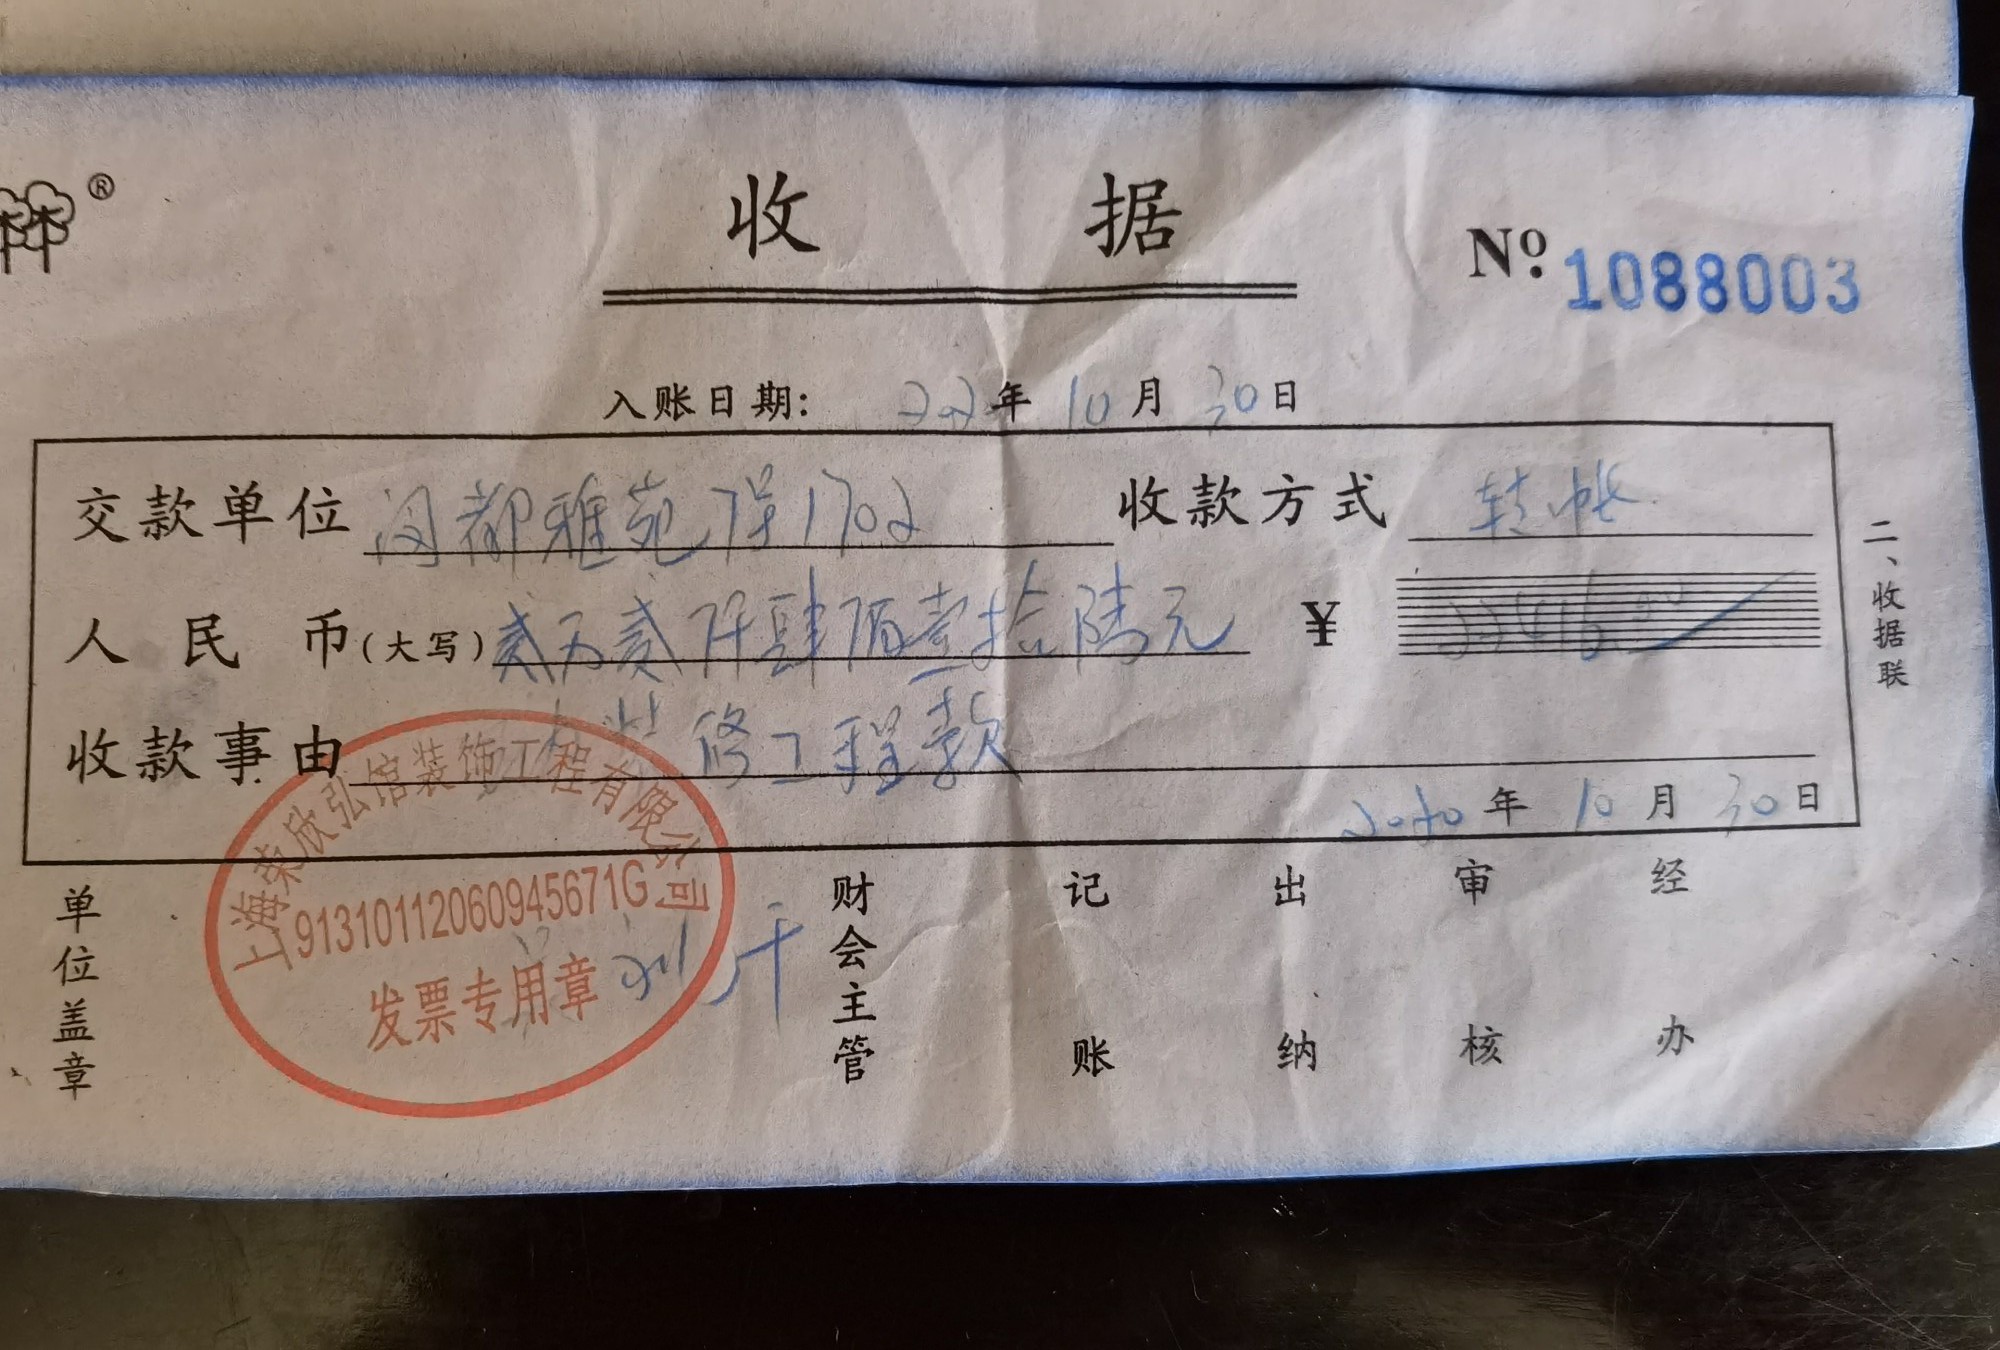 ®
收 据
Nº 1088003
入账日期: 年 10 月 30 日
交款单位 闵都雅苑 7号1702 收款方式 转帐
人民币(大写) 贰万贰仟肆佰壹拾陆元 ¥ 22416.00
收款事由 装修工程款
2020 年 10 月 30 日
二、收据联
上海荣欣弘馆装饰工程有限公司
91310112060945671G
发票专用章
单位盖章 财会主管 记账 出纳 审核 经办